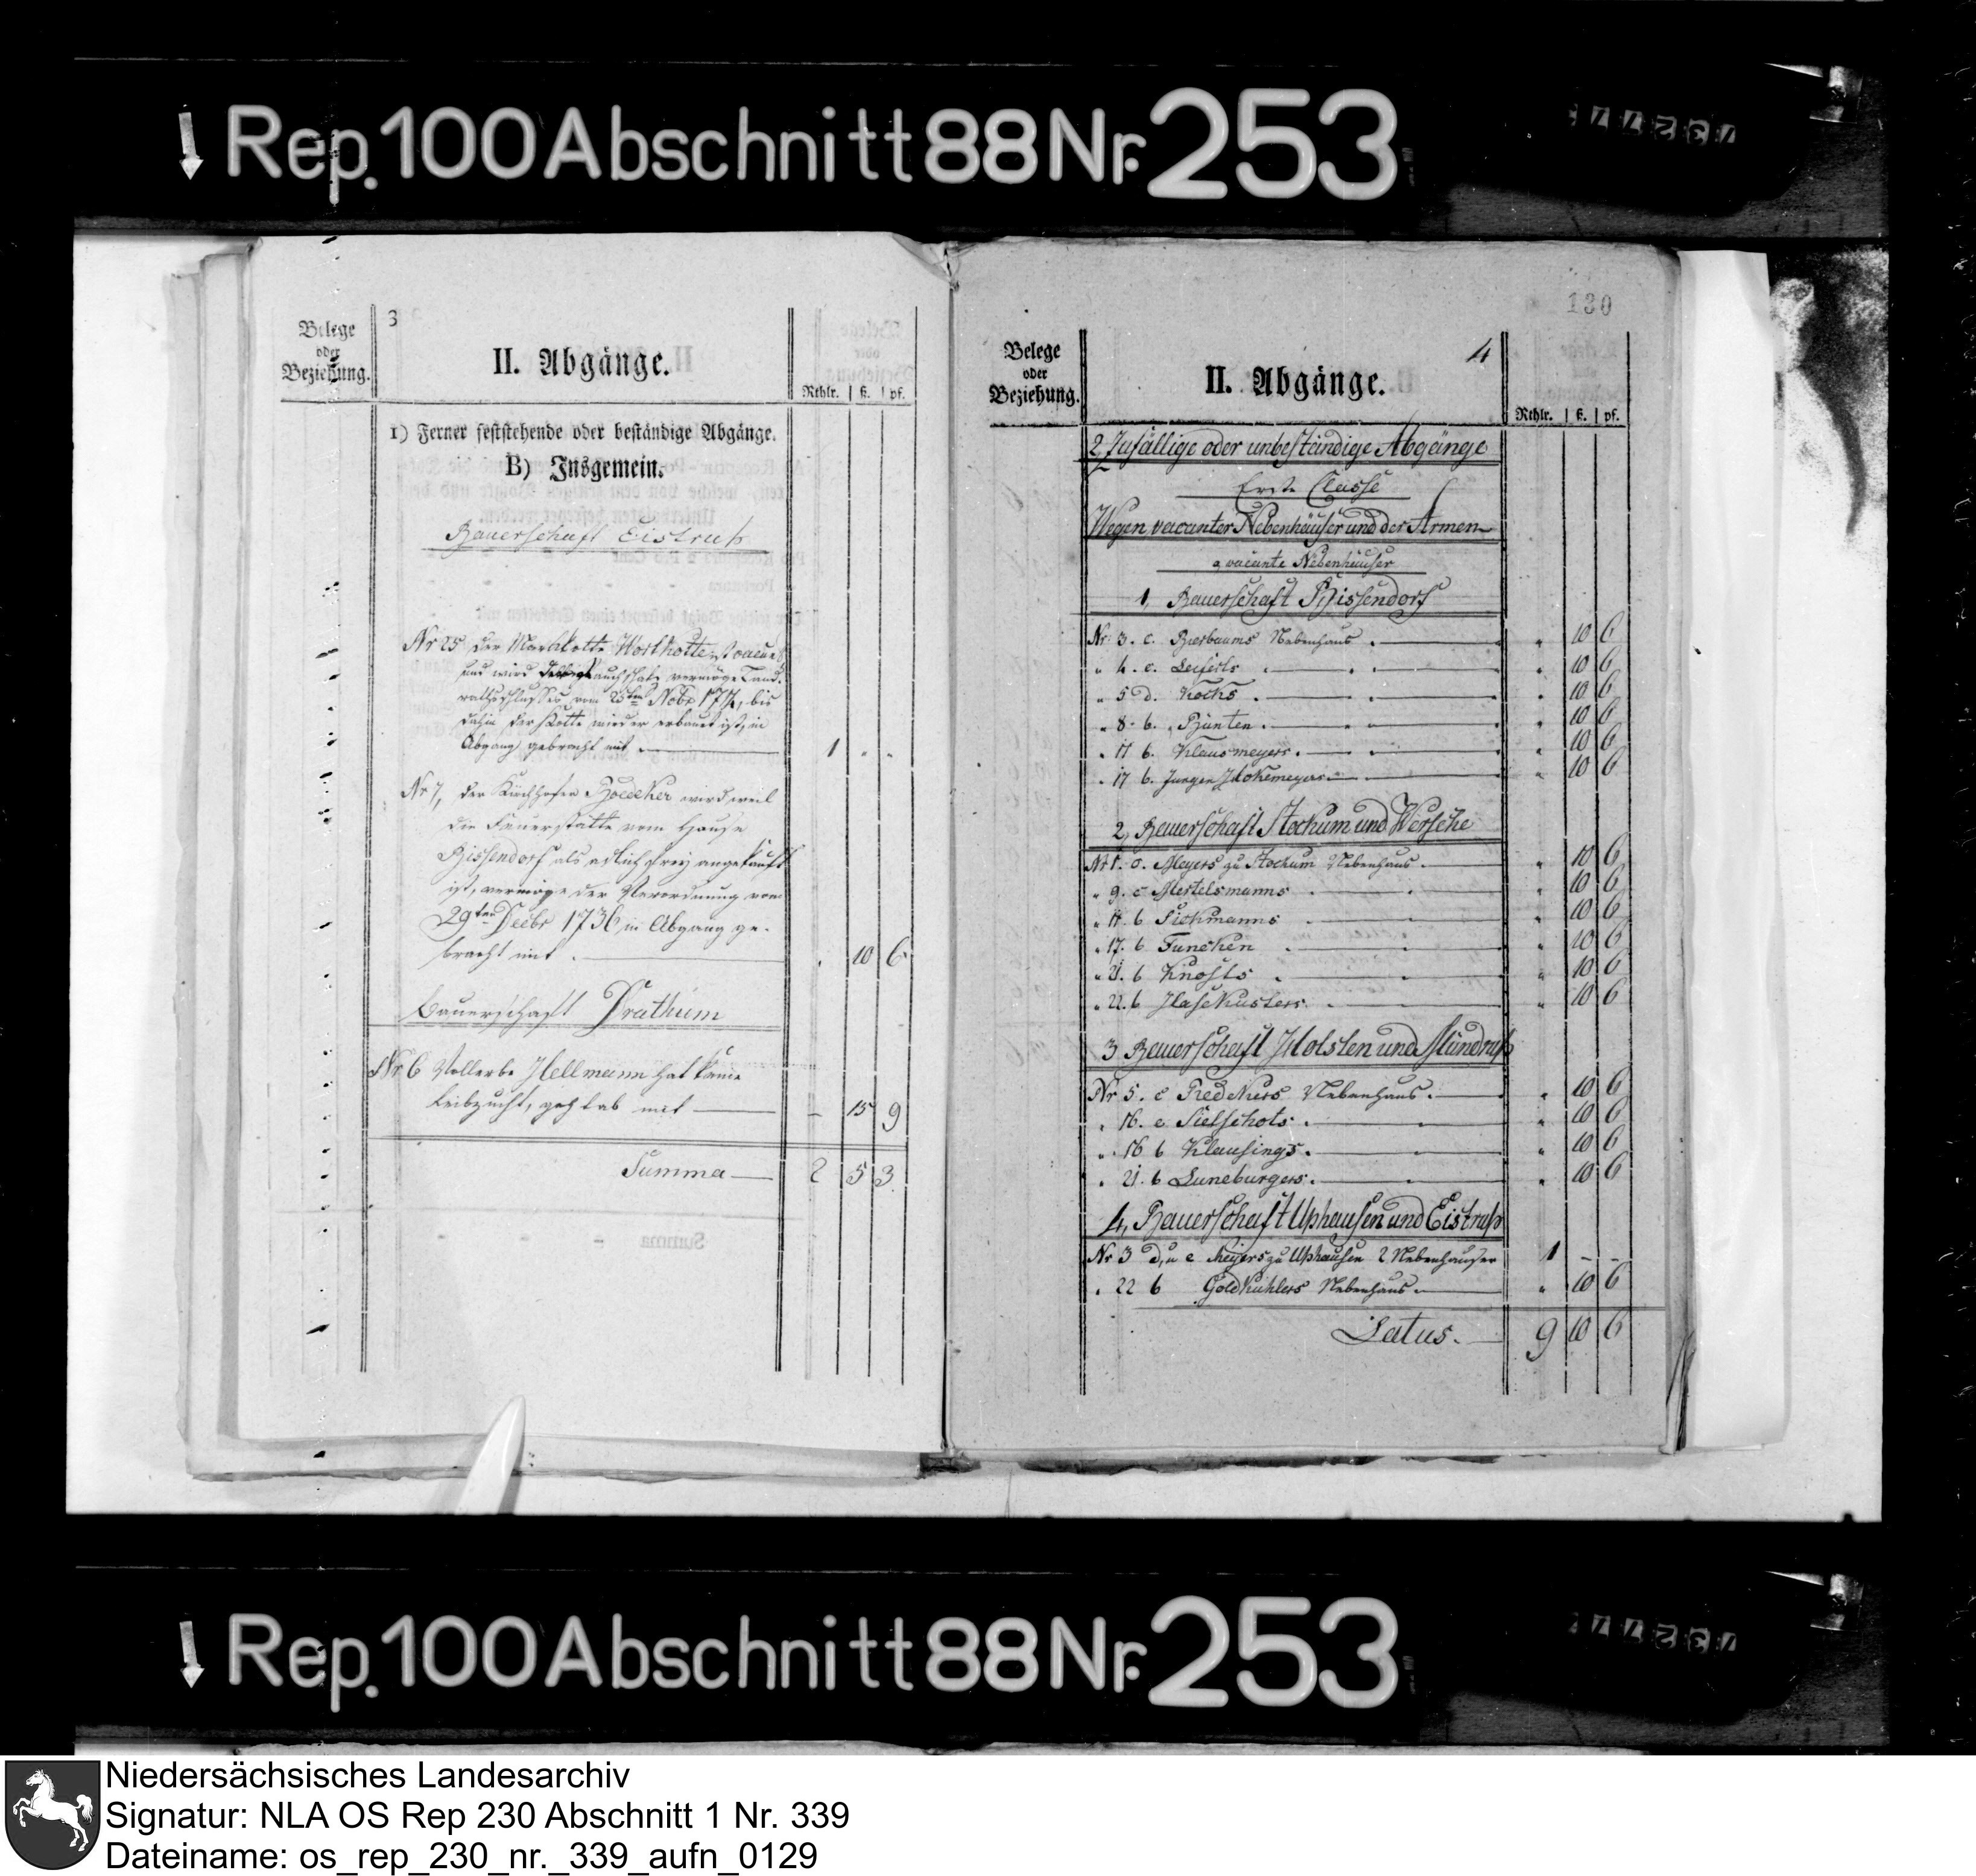 Rep. 100 Abschnitt 88 Nr. 253
3
Belege
oder
Beziehung.
II. Abgänge.
Rthlr. ß. pf.
1) Ferner feststehende oder beständige Abgänge.
B) Insgemein.
Bauerschaft Eistrup
Nr 25 der Markkotte Northotte ist
und wird auch vermöge Land-
rathsschlusses vom 25ten Nobr bis
dahin der Kotte wieder erbauet ist, in
Abgang gebracht mit 1 " "
Nr 7, der Kirchhofer Boedeker wird weil
die Feuerstätte vom Hause
Bissendorf als adlich frey angekauft
ist, vermöge der Verordnung vom
29ten Decbr 1736 in Abgang ge-
bracht mit . 10 6
Bauerschaft Drathum
Nr 6 Vollerbe Hellmann hat keine
Leibzucht, geht ab mit – 15 9
Summa 2 5 3
130
4
Belege
oder
Beziehung.
II. Abgänge.
Rthlr. ß. pf.
2 Zufällige oder unbeständige Abgänge
Erste Classe
Wegen vacanter Nebenhäuser und der Armen
a, vacante Nebenhäuser
1, Bauerschaft Bissendorf
Nr 3. c. Bierbaums Nebenhaus " 10 6
" 4. c. Leiferts " 10 6
" 5 d. Kochs " 10 6
" 8 b. Bünten " 10 6
" 11 b. Klausmeyers " 10 6
" 17 b. Jurgen Hokemeyers " 10 6
2, Bauerschaft Stockum und Wersche
Nr 1. c. Meyers zu Stockum Nebenhaus " 10 6
" 9. c Mertelsmanns " 10 6
" 11. b Sickmanns " 10 6
" 17. b Funcken " 10 6
" 21. b Knosts " 10 6
" 22. b Hasekusters " 10 6
3 Bauerschaft Holsten und Mündrup
Nr 5. c Fredekers Nebenhaus " 10 6
" 16. c Sielschots " 10 6
" 16 b Klausings " 10 6
" 21. b Luneburgers " 10 6
4, Bauerschaft Uphausen und Eistrup
Nr 3 d, u e Meyers zu Uphausen 2 Nebenhäuser 1 – –
" 22 b Goldkuhlers Nebenhaus " 10 6
Latus. 9 10 6
Rep. 100 Abschnitt 88 Nr. 253
Niedersächsisches Landesarchiv
Signatur: NLA OS Rep 230 Abschnitt 1 Nr. 339
Dateiname: os_rep_230_nr._339_aufn_0129